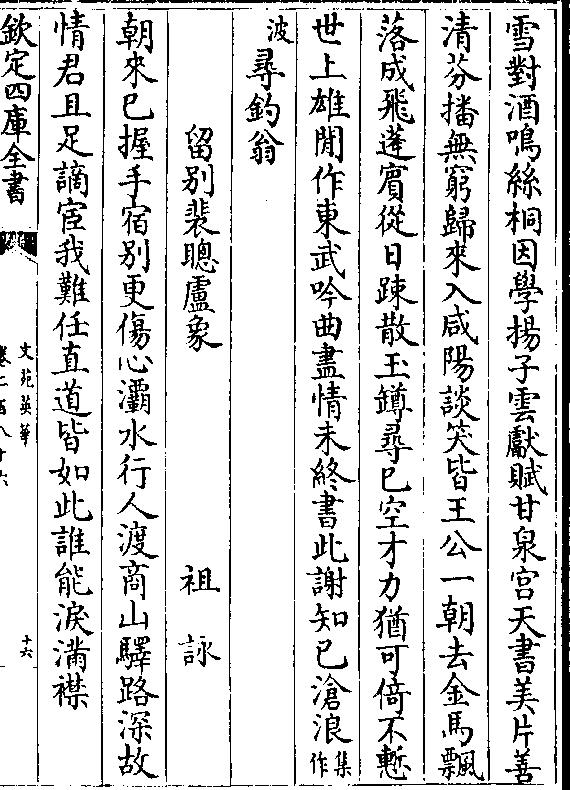 雪對酒鳴絲桐因學揚子雲獻賦甘泉宮天書美片善
清芬播無窮歸來入咸陽談笑皆王公一朝去金馬飄
落成飛蓬賓從日踈散玉鐏尋已空才力猶可倚不慙
世上雄閒作東武吟曲盡情未終書此謝知已滄浪集作
波尋釣翁
留別裴聰盧象 祖詠
朝來已握手宿別更傷心灞水行人渡商山驛路深故
情君且足謫宦我難任直道皆如此誰能淚滿襟
欽定四庫全書
文苑英華
卷二百八十六
十六